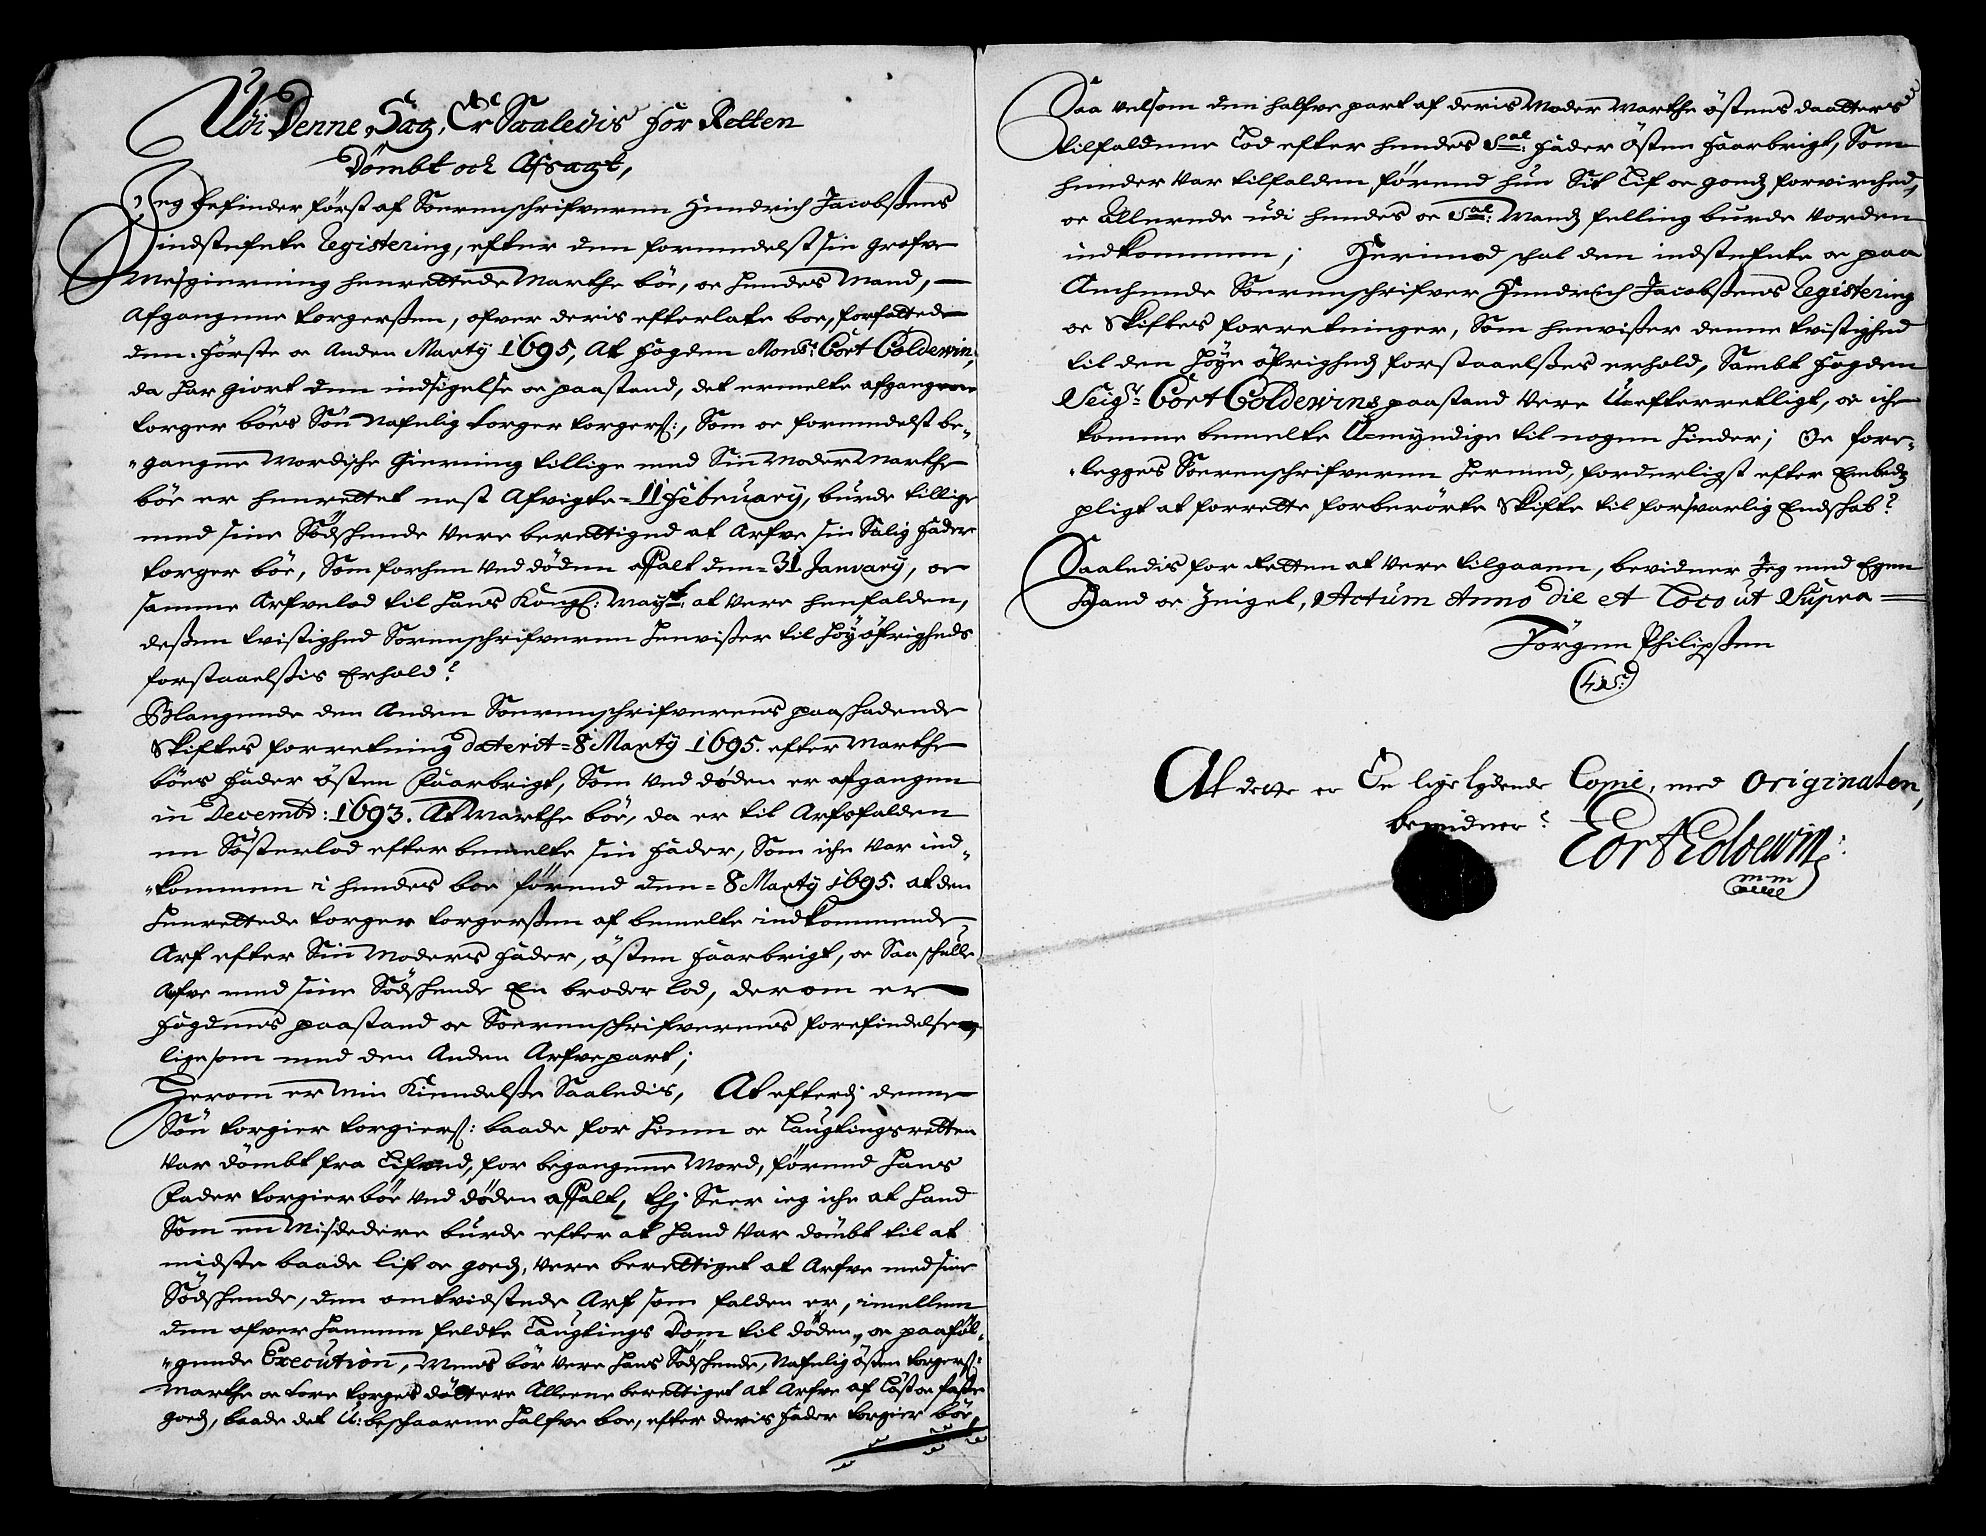 Udi Denne Sag, Er Saaledis for Retten
Dömbt och Afsagt,
Jeg befinder först af Sorenschrifveren Hendrich Jacobßens
indstefnte Registering, efter den formedelst sin grofve
Misgierning henrettede Marthe böe, oc hendes Mand,
Afgangne torgerßen, ofver deris efterlatte boe, forfattede
den förste oc Anden Marty 1695, At fogden Monsr: Cort Coldewin,
da har giort den indsigelse oc paastand, det ermelte afgangne
torger böes Sön Nafnlig torger torgerß:, Som oc formedelst be-
gangne Mordische Gierning tillige med Sin Moder Marthe
böe er henrettet nest Afvigte 11 February, burde tillige
med sine Södschende Were berettiged at Arfve sin Salig fader
torger böe, Som forhen ved döden affalt den 31 January, oc
samme Arfvelod til hans Kongl: Mayt: at Were henfalden,
deßen tvistighed Sorenschrifveren henvißer til Höyöfrigheds
forstaaelßis Erhold?
Belangende den Anden Sorenschrifverens paaskadende
Skiftes forretning daterit 8 Marty 1695. efter Marthe
böes fader östen faarbrigt, Som ved döden er afgangen
in Decembr: 1693. At Marthe böe, da er til Arfsfalden
en Sösterlod efter bemelte sin fader, Som iche Var ind-
kommen i hendes boe förend den 8 Marty 1695. at den
henrettede torger torgerßen af bemelte indkommende
Arf efter Sin Moders fader, östen faarbrigt, oc Saa schulle
Arfve med sine Södschende En broder lod, derom er
fogdens paastand oc Sorenschrifverens forefindelse
ligesom med den Anden Arfvepart;
Herom er min Kiendelße Saaledis, At efterdj denne
Sön torgier torgierß: baade for hiem oc Laugtingsretten
Var dömbt fra Lifved, for begangne Mord, förend hans
fader torgier böe ved döden affalt, thj Seer ieg iche at hand
Som en Misdedere burde efter at hand Var dömbt til at
midste baade lif oc goeds, were berettiget at Arfve med sine
Södschende, den omtvidstede Arf som falden er, imellem
den ofver hannem feldte Laugtings dom til döden, oc paaföl-
gende Execution, Mens bör Were hans Södschende, Nafnlig östen torgerß:
Marthe oc tore torges döttere Alleene berettiget at Arfve af Löst oc faste
goeds, baade det U: beschaarne halfve boe, efter deris fader torgier böe,
Saa velsom den halfve part af deris Moder Marthe östens daatters
tilfaldene Lod efter hendes Sal: fader östen faarbrigt, Som
hender var tilfalden, förend hun Sit Lif oc goeds forvirched,
oc Allerede udi hendes oc Sal: Mands felling burde vorden
indkommen; Herimod schal den indstefnte oc paa
Anchende Sorenschrifver Hendrich Jacobßens Registering
oc Skiftes forretninger, Som henvißer denne tvistighed
til den Höye öfrigheds forstaaelßes erhold, Sambt fogden
Seigr: Cort Coldewins paastand Were U-efterretligt, oc iche
komme bemelte U-myndige til nogen hinder; Oc fore-
legges Sorenschrifveren hermed, forderligst efter Embeds
pligt at forrette forberörte Skifte til forsvarlig Endschab?
Saaledis for Retten at Were tilgaaen, bevidner Jeg med Egen
Haand oc Zeigel, Actum Anno die et Loco ut Supra
Jörgen Philipßen
(LS:)
At dette er En lige lydende Copie, med Originalen,
bevidner? Cort Coldewin:
mm